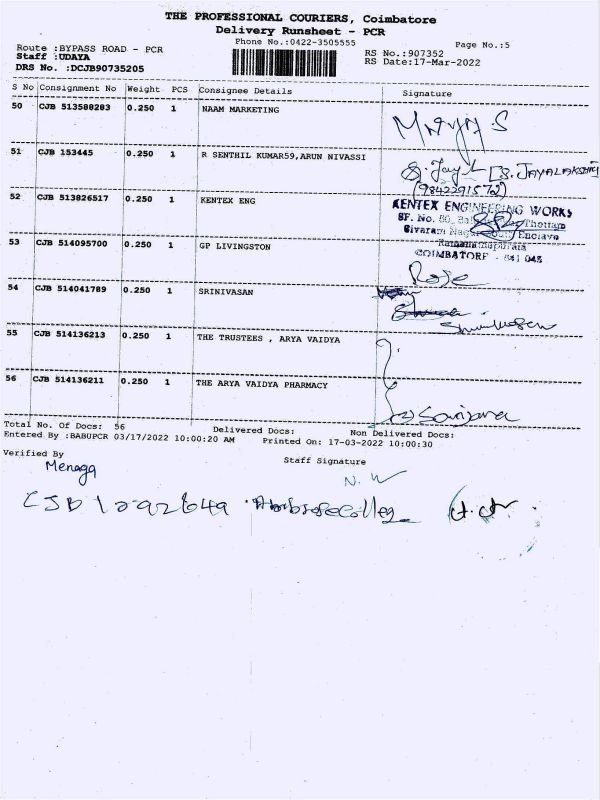 THE PROFESSIONAL COURIERS, Coimbatore
Delivery Runsheet - PCR
Phone No.:0422-3505555
Page No.:5
Route :BYPASS ROAD - PCR
RS No.:907352
Staff :UDAYA
RS Date:17-Mar-2022
DRS No. :DCJB90735205
S No Consignment No Weight PCS Consignee Details Signature
50 CJB 513588283 0.250 1 NAAM MARKETING
51 CJB 153445 0.250 1 R SENTHIL KUMAR59,ARUN NIVASSI
[S. JAYALAKSHMI]
(9842291572)
52 CJB 513826517 0.250 1 KENTEX ENG
KENTEX ENGINEERING WORKS
SF. No. 80, Thottam
Sivaram Nagar Enclave
Ramanathapuram
COIMBATORE - 641 045
53 CJB 514095700 0.250 1 GP LIVINGSTON
Rose
54 CJB 514041789 0.250 1 SRINIVASAN
55 CJB 514136213 0.250 1 THE TRUSTEES , ARYA VAIDYA
56 CJB 514136211 0.250 1 THE ARYA VAIDYA PHARMACY
Sanjana
Total No. Of Docs: 56 Delivered Docs: Non Delivered Docs:
Entered By :BABUPCR 03/17/2022 10:00:20 AM Printed On: 17-03-2022 10:00:30
Verified By Staff Signature
Menaga